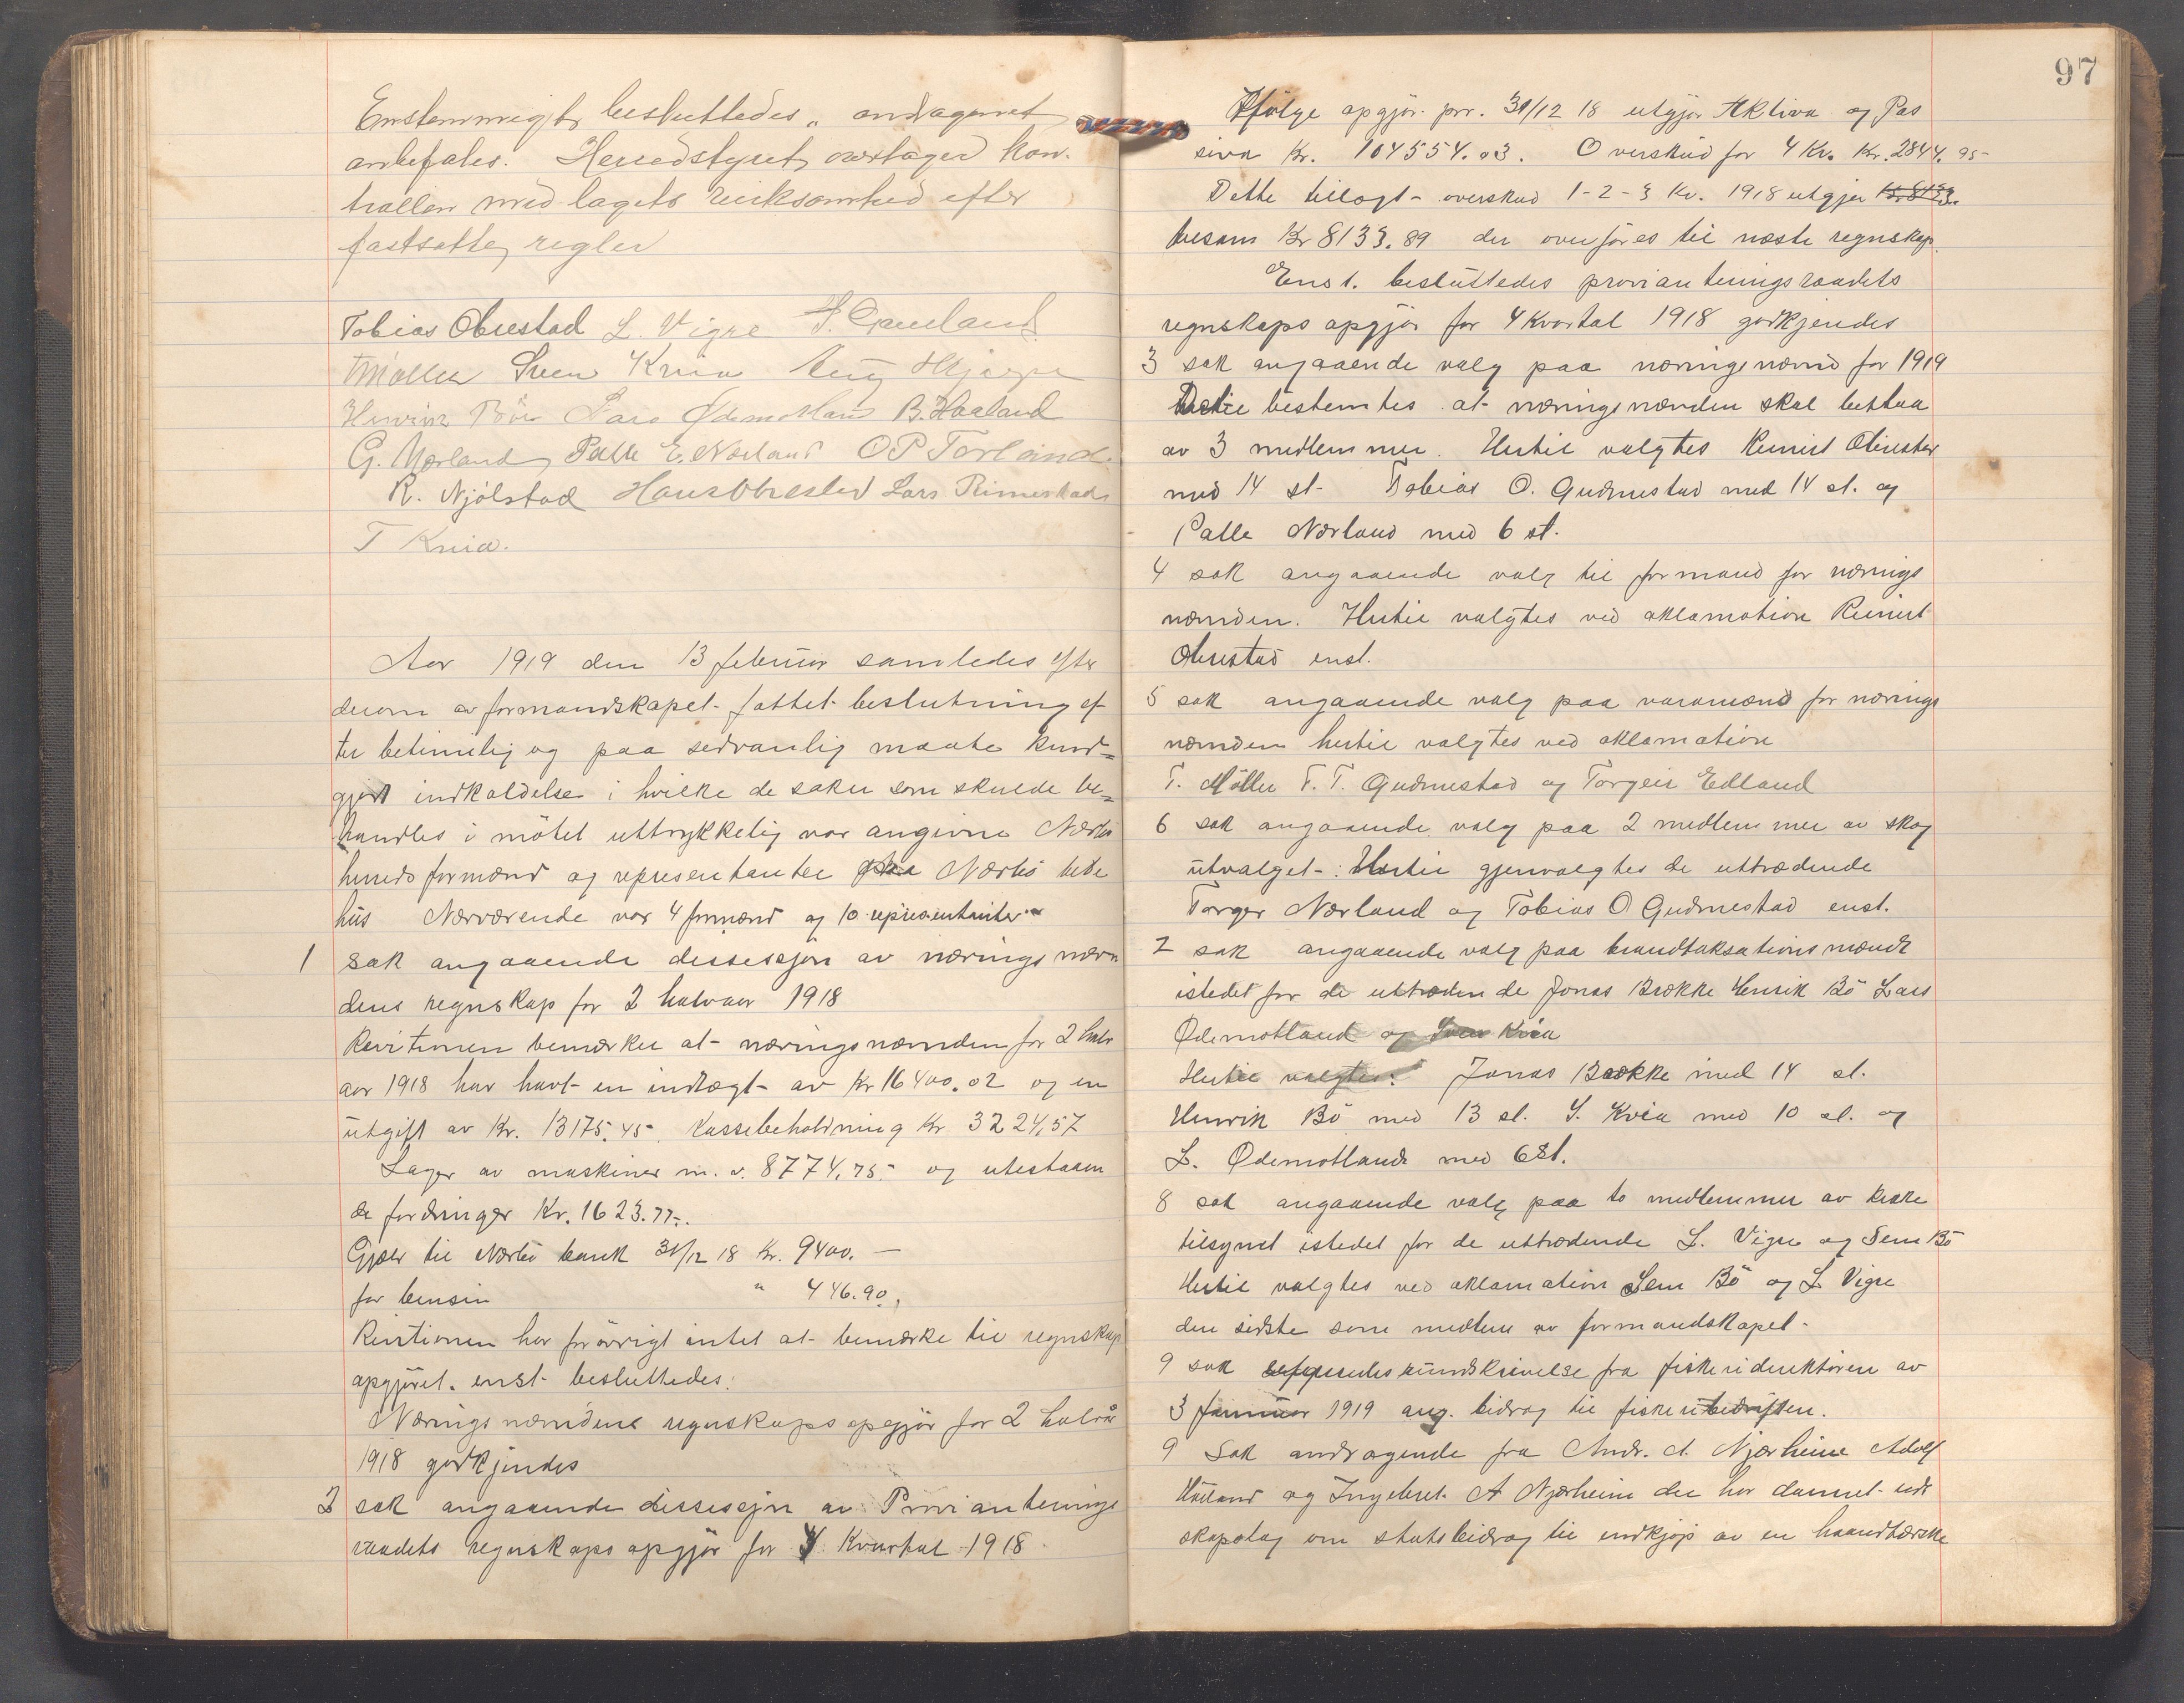 Enstemmigt besluttedes, andragenet
anbefales. Herredstyret overtager kon-
trollen med lagets virksomhed efter
fastsatte regler
Tobias Obrestad L. Vigre
TMøller Sven Kvia
Henrik Bö Lars Ødemotland B. Haaland
G. Nærland Palle E. Nærland O P Torland.
R. Njølstad Hans Obrestad Lars Rimestad
T Kvia.
Aar 1919 den 13 februar samledes efter
derom av formandskapet fattet beslutning ef
ter betimelig og paa sedvanlig maate kund=
gjort indkaldelse i hvilke de saker som skulde be=
handles i mötet uttrykkelig var angivne Nærbö
herreds formænd og representanter paa Nærbö bede
hus Nærværende var 4 formænd og 10 representanter
1 sak angaaende dessesjon av nærings næm
dens regnskap for 2 halvaar 1918
Revitionen bemærker at næringsnæmden for 2 halv
aar 1918 har havt en indtægt av Kr 16400.02 og en
utgift av Kr. 13175.45 Kassebeholdning Kr 3224,57
Lager av maskiner m.v. 8774,75 og utestaaen
de fordringer Kr. 1623.77.
Gjæld til Nærbö bank 31/12 18 Kr. 9400. —
for bensin " 446.90,
Revitionen har forövrigt intet at bemærke til regnskap
opgjöret. enst besluttedes:
Næringsnæmdens regnskaps opgjör for 2 halvår
1918 godkjendes
2 sak angaaende dessesjon av Provianterings
raadets regnskaps opgjör for 4 Kvartal 1918
97
Ifölge opgjör pr. 31/12 18 utgjör Aktiva og Pas
siva Kr. 104554.03. Overskud for 4 Kv. Kr. 2844.95
Dette tillagt overskud 1-2-3 Kv. 1918 utgjør
tilsam Kr 8133.89 der overföres til næste regnskap.
Enst. besluttedes provianteringsraadets
regnskaps opgjör for 4 Kvartal 1918 godkjendes
3 sak angaaende valg paa næringsnæmd for 1919
Dertil bestemtes at næringsnæmden skal bestaa
av 3 medlemmer. Hertil valgtes Reinert Obrestad
med 14 st. Tobias O. Gudmestad med 14 st. og
Palle Nærland med 6 st.
4 sak angaaende valg til formand for nærings
næmden. Hertil valgtes ved aklamation Reinert
Obrestad enst.
5 sak angaaende valg paa varamænd for nærings
næmden hertil valgtes ved aklamation
T. Möller T. T. Gudmestad og Torgeir Edland
6 sak angaaende valg paa 2 medlemmer av skog
utvalget: Hertil gjenvalgtes de uttrædende
Torger Nærland og Tobias O Gudmestad enst.
7 sak angaaende valg paa brandtaksationsmænd
istedet for de uttrædende Jonas Brække Henrik Bö Lars
Ødemotland og Sven Kvia
Hertil valgtes: Jonas Brække med 14 st.
Henrik Bö med 13 st. S. Kvia med 10 st. og
L. Ødemotland med 6 st.
8 sak angaaende valg paa to medlemmer av kirke
tilsynet istedet for de uttrædende L. Vigre og Sem Bö
Hertil valgtes ved aklamation Sem Bö og L Vigre
den sidste som medlem av formandskapet.
9 sak refereredes rundskrivelse fra fiskeridirektören av
3 januar 1919 ang. bidrag til fiskeribedriften.
9 Sak andragende fra Andr. A. Njærheim Adolf
Höiland og Ingebret A Njærheim der har dannet red
skapslag om statsbidrag til indkjöp av en haandtærske